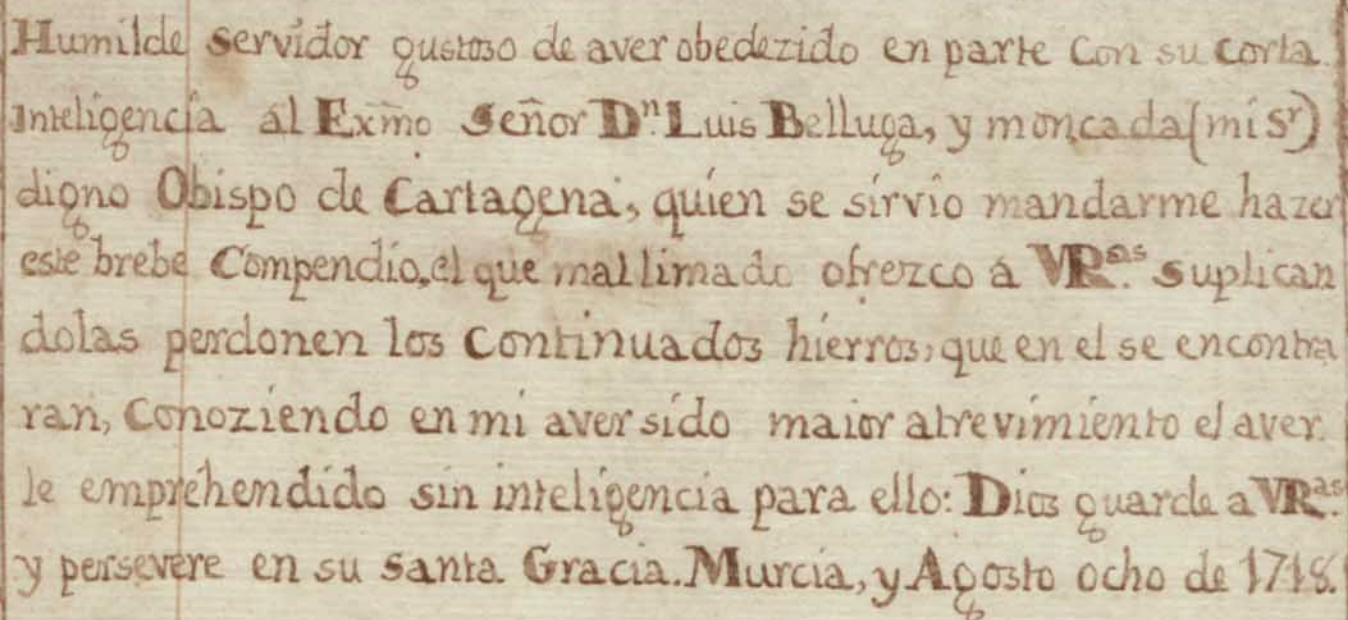 Humilde servidor gustoso de aver obedezido en parte con su corta
Inteligencia al Exm̃o Señor Dⁿ. Luis Belluga, y moncada (mi Sʳ)
digno Obispo de Cartagena, quien se sirvio mandarme hazer
este brebe Compendio, el que mal limado ofrezco á VRᵃˢ. suplican
dolas perdonen los Continuados hierros, que en el se encontra
ran, Conoziendo en mi aver sido maior atrevimiento el aver
le emprehendido sin inteligencia para ello: Dios guarde a VRᵃˢ.
y persevere en su santa Gracia. Murcia, y Agosto ocho de 1718.